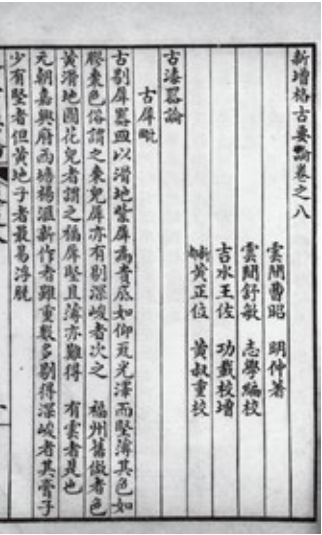 新增格古要論卷之八
雲間曹昭 明仲著
雲間舒敏 志學編校
吉水王佐 功載校增
黃正位 黃叔重校
古漆器論
古犀毗
古剔犀器皿以滑地紫犀為貴底如仰瓦光澤而堅薄其色如
膠棗色俗謂之棗兒犀亦有剔深峻者次之 福州舊做者色
黃滑地圓花兒者謂之福犀堅且薄亦難得 有雲者是也
元朝嘉興府西塘楊滙新作者雖重數多剔得深峻者其膏子
少有堅者但黃地子者最易浮脫